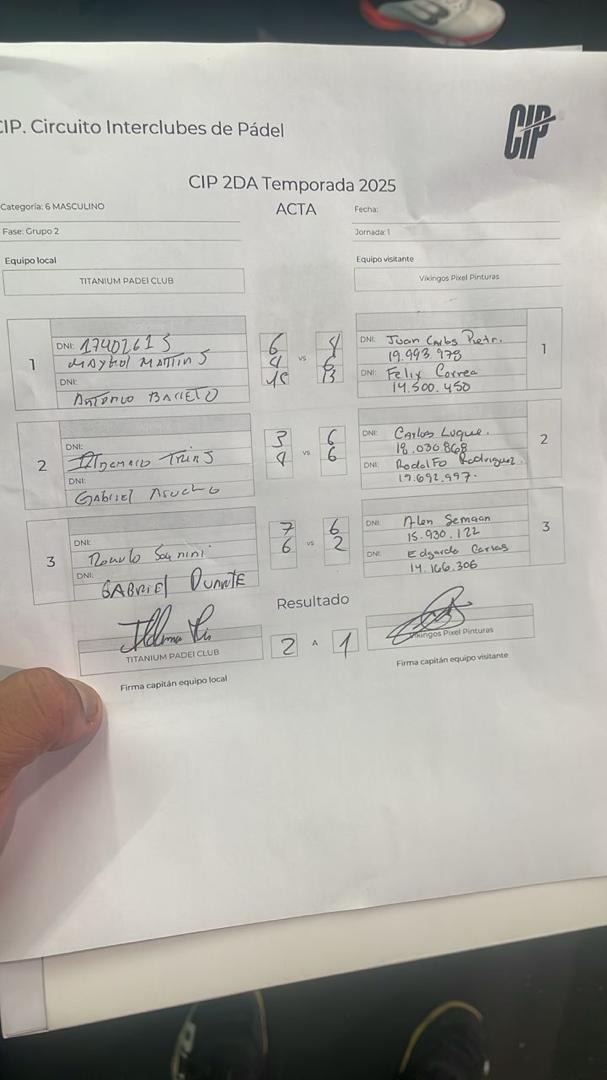 CIP. Circuito Interclubes de Pádel
CIP
CIP 2DA Temporada 2025
Categoría: 6 MASCULINO
ACTA
Fecha:
Fase: Grupo 2
Jornada: 1
Equipo local
Equipo visitante
TITANIUM PADEL CLUB
Vikingos Pixel Pinturas
1
DNI: 17402615
DNI:
Antonio
6 4
4 6
vs
15 13
DNI: Juan Carlos
19.993.978
DNI: Felix Correa
14.500.450
1
2
DNI:
DNI:
Gabriel
3 6
vs
4 6
DNI: Carlos Luque.
18.030.868
DNI: Rodolfo Rodriguez
17.692.997.
2
3
DNI:
DNI:
GABRIEL DUARTE
7 6
vs
6 2
DNI: Alen Semaan
15.930.122
DNI: Edgardo
14.166.306
3
Resultado
TITANIUM PADEL CLUB
2 A 1
Vikingos Pixel Pinturas
Firma capitán equipo local
Firma capitán equipo visitante